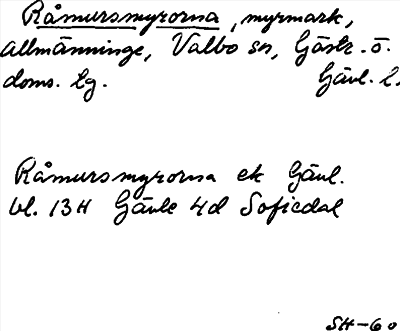 Råmursmyrorna, myrmark,
allmänninge, Valbo sn, Gästr. ö.
doms. tg. Gävl. l.
Råmursmyrorna ek Gävl.
bl. 13H Gävle 4d Sofiedal
SH-60